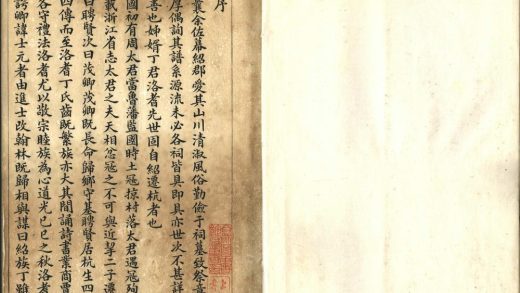 序
曩余佐幕紹郡愛其山川清淑風俗勤儉于祠墓致祭
厚偶詢其譜系源流未必各祠皆具即具亦世次不甚詳
善也姊婿丁君洛者先世固自紹遷杭者也
國初有周太君當魯藩監國時土寇掠村落太君遇寇殉
載浙江省志太君之夫天相忿寇之不可與近挈二子遷
曰聘賢次曰茂卿茂卿既長命歸鄉守墓聘賢居杭生四
四傳而至洛者丁氏齒既繁族亦大其間誦詩書業商賈
各守禮法洛者尤以敬宗睦族為心道光己巳之秋洛者
諤卿諱士元者由進士改翰林既歸相與謀曰紹族丁雖